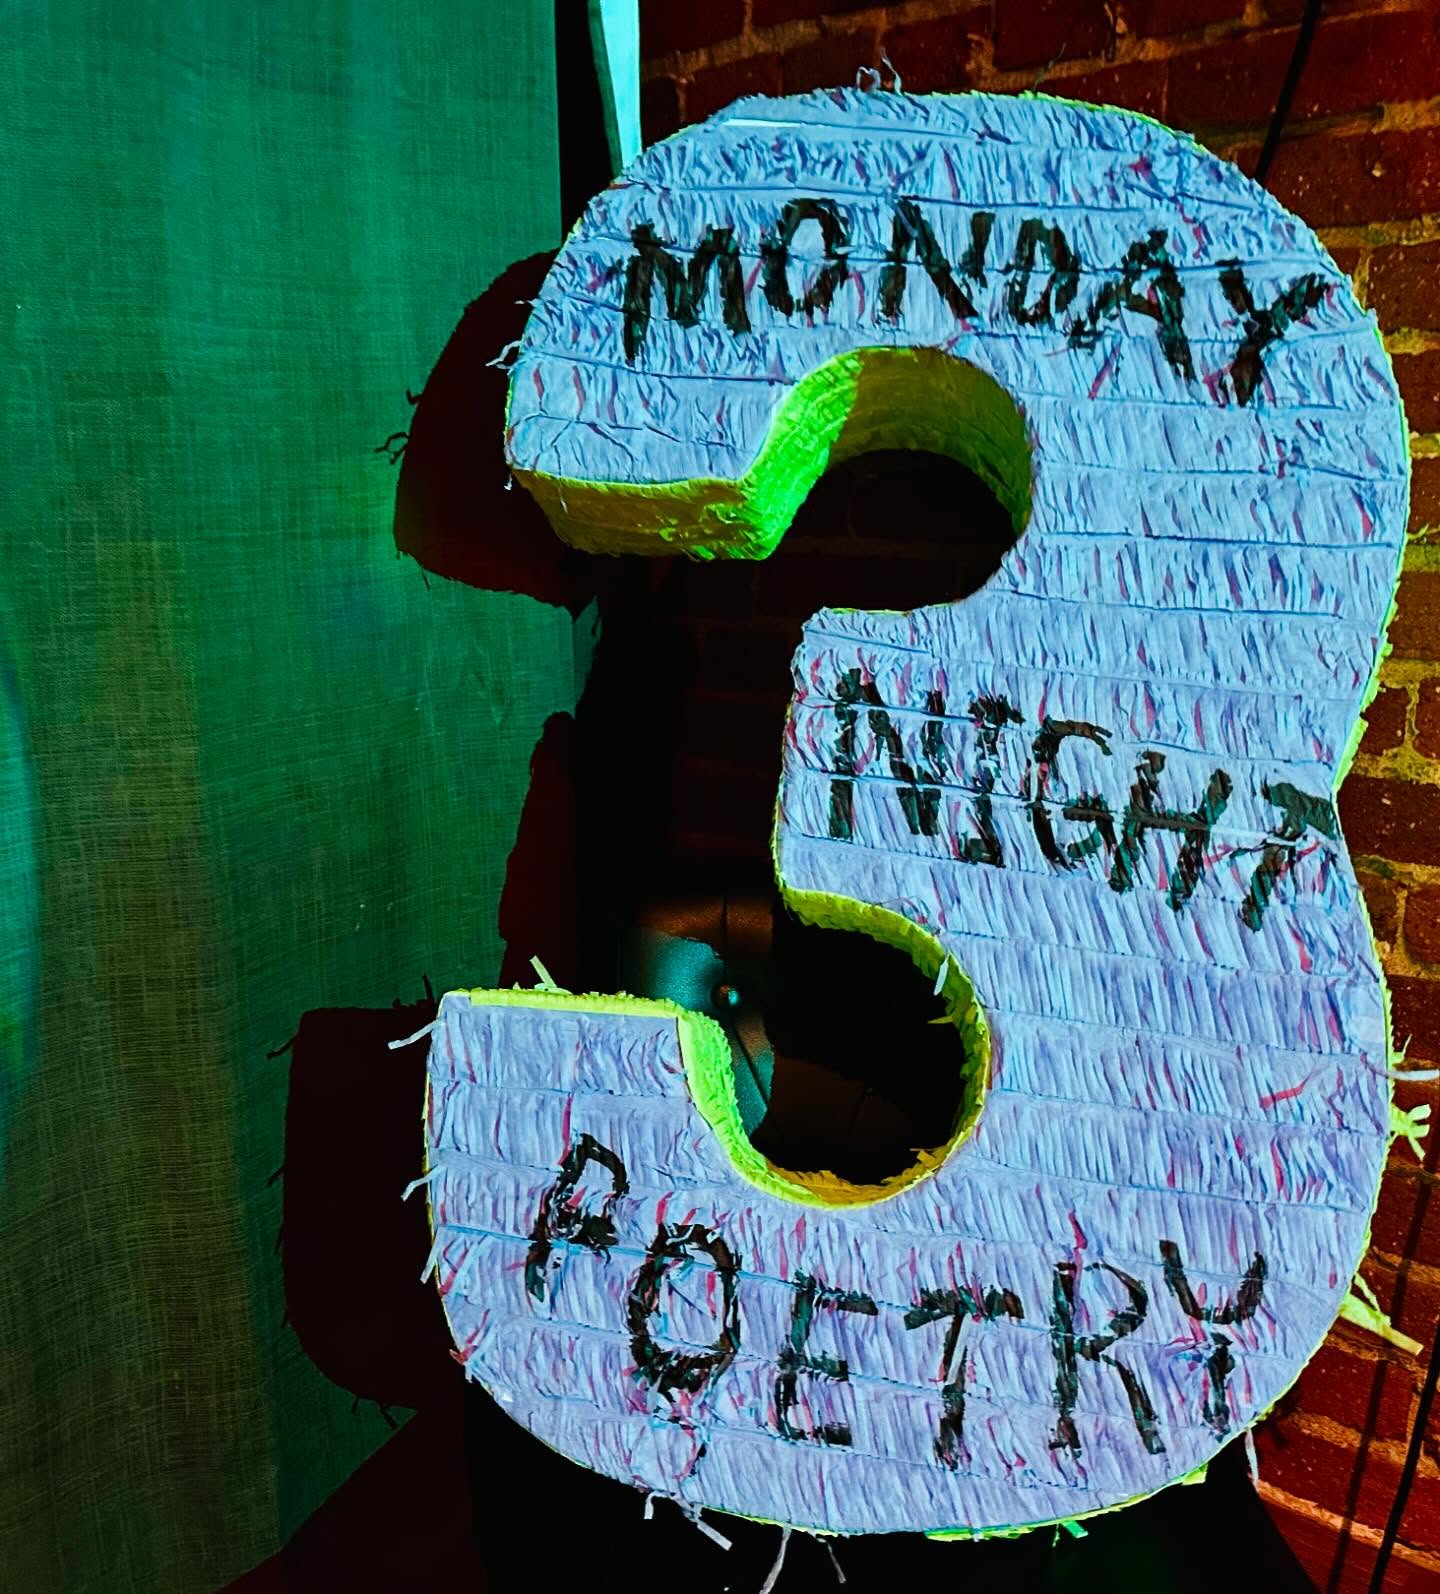 MONDAY
NIGHT
POETRY